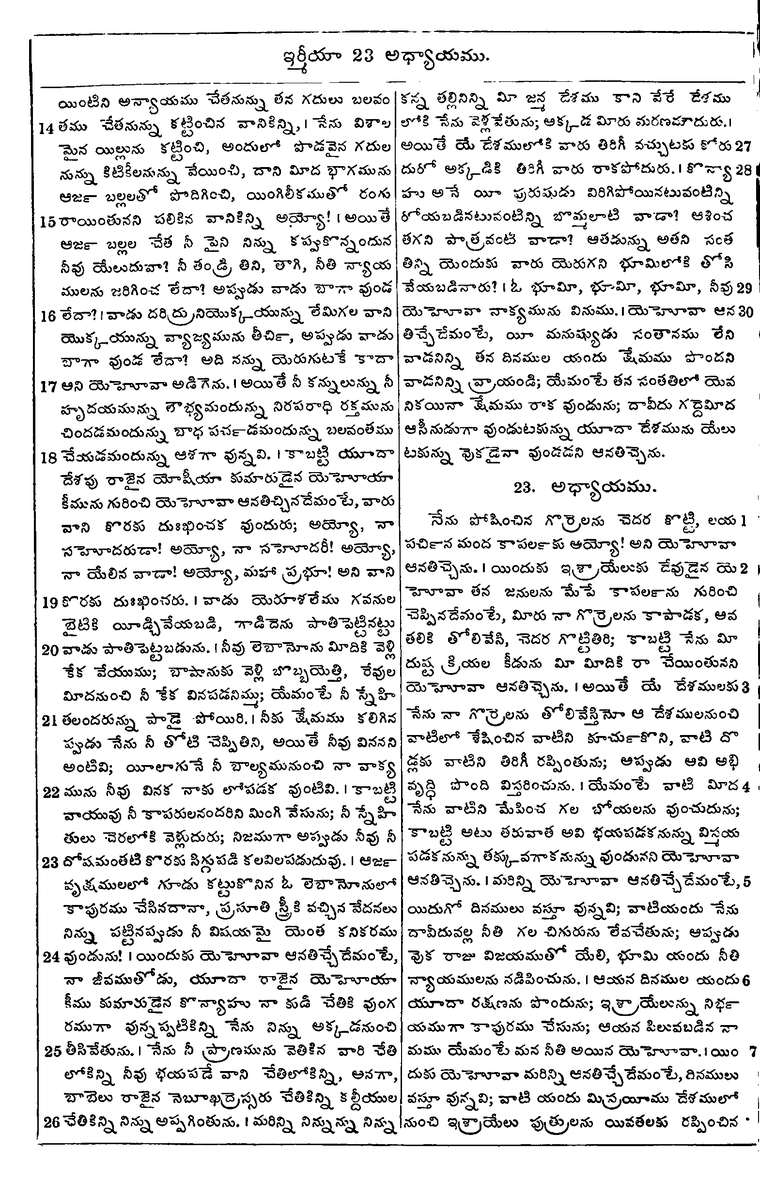 ఇర్మీయా 23 అధ్యాయము.
యింటిని అన్యాయము చేతనున్న తన గదులు బలవం
14 తము చేతనున్న కట్టించిన వానికిన్ని, । నేను విశాల
మైన యిల్లును కట్టించి, అందులో పొడవైన గదుల
నున్న కిటికీలనున్న వేయించి, దాని మీద భాగమును
ఆజ౯ బల్లలతో పొదిగించి, యింగిలీకముతో రంగు
15 రాయింతునని పలికిన వానికిన్ని అయ్యో! । అయితే
ఆజ౯ బల్లల చేత నీ పైని నిన్ను కప్పుకొన్నందున
నీవు యేలుదువా? నీ తండ్రి తిని, తాగి, నీతి న్యాయ
ములను జరిగించ లేదా? అప్పుడు వాడు బాగా వుండ
16 లేదా? । వాడు దరిద్రునియొక్కయున్ను లేమిగల వాని
యొక్కయున్ను వ్యాజ్యమును తీచి౯, అప్పుడు వాడు
బాగా వుండ లేదా? అది నన్ను యెరుగుటకే కాదా
17 అని యెహోవా అడిగెను. । అయితే నీ కన్నులున్ను నీ
హృదయమున్ను లౌభ్యమందున్ను నిరపరాధి రక్తమును
చిందడమందున్ను బాధ పచ౯డమందున్ను బలవంతము
18 చేయడమందున్ను ఆశగా వున్నవి. । కాబట్టి యూదా
దేశపు రాజైన యోషీయా కుమారుడైన యెహోయా
కీమును గురించి యెహోవా ఆనతిచ్చినదేమంటే, వారు
వాని కొరకు దుఃఖించక వుందురు; అయ్యో, నా
సహోదరుడా! అయ్యో, నా సహోదరీ! అయ్యో,
నా యేలిన వాడా! అయ్యో, మహా ప్రభూ! అని వాని
19 కొరకు దుఃఖించరు. । వాడు యెరూశలేము గవనుల
బైటికి యీడ్చివేయబడి, గాడిదెను పాతిపెట్టినట్టు
20 వాడు పాతిపెట్టబడును. । నీవు లెబానోను మీదికి వెళ్లి
కేక వేయుము; బాషానుకు వెళ్లి బొబ్బయెత్తి, రేవుల
మీదనుంచి నీ కేక వినపడనిమ్ము; యేమంటే నీ స్నేహి
21 తులందరున్ను పాడై పోయిరి. । నీకు క్షేమము కలిగిన
ప్పుడు నేను నీ తోటి చెప్పితిని, అయితే నీవు విననని
అంటివి; యీలాగునే నీ బాల్యమునుంచి నా వాక్య
22 మును నీవు వినక నాకు లోపడక వుంటివి. । కాబట్టి
వాయువు నీ కాపరులనందరిని మింగి వేసును; నీ స్నేహి
తులు చెరలోకి వెళ్లుదురు; నిజముగా అప్పుడు నీవు నీ
23 దోషమంతటి కొరకు సిగ్గుపడి కలవిలపడుదువు. । ఆజ౯
వృక్షములలో గూడు కట్టుకొనిన ఓ లెబానోనులో
కాపురము చేసినదానా, ప్రసూతి స్త్రీకి వచ్చిన వేదనలు
నిన్ను పట్టినప్పుడు నీ విషయమై యెంత కనికరము
24 వుండును! । యిందుకు యెహోవా ఆనతిచ్చేదేమంటే,
నా జీవముతోడు, యూదా రాజైన యెహోయా
కీము కుమారుడైన కొన్యాహు నా కుడి చేతికి వుంగ
రముగా వున్నప్పటికిన్ని నేను నిన్ను అక్కడనుంచి
25 తీసివేతును. । నేను నీ ప్రాణమును వెతికిన వారి చేతి
లోకిన్ని నీవు భయపడే వాని చేతిలోకిన్ని, అనగా,
బాబెలు రాజైన నెబూఖద్రెస్సరు చేతికిన్ని కల్దీయుల
26 చేతికిన్ని నిన్ను అప్పగింతును. । మరిన్ని నిన్నున్ను నిన్ను
కన్న తల్లినిన్ని మీ జన్మ దేశము కాని వేరే దేశము
లోకి నేను వెళ్లవేతును; అక్కడ మీరు మరణమౌదురు. ।
అయితే యే దేశములోకి వారు తిరిగీ వచ్చుటకు కోరు 27
దురో అక్కడికి తిరిగీ వారు రాకపోదురు. । కొన్యా 28
హు అనే యీ పురుషుడు విరిగిపోయినటువంటిన్ని
రోయబడినటువంటిన్ని బొమ్మలాటి వాడా? ఆశించ
తగని పాత్రవంటి వాడా? ఆతడున్ను అతని సంత
తిన్ని యెందుకు వారు యెరుగని భూమిలోకి తోసి
వేయబడినారు? । ఓ భూమి, భూమి, భూమి, నీవు 29
యెహోవా వాక్యమును వినుము. । యెహోవా ఆన 30
తిచ్చేదేమంటే, యీ మనుష్యుడు సంతానము లేని
వాడనిన్ని తన దినముల యందు క్షేమము పొందని
వాడనిన్ని వ్రాయండి; యేమంటే తన సంతతిలో యెవ
నికయినా క్షేమము రాక వుండును; దావీదు గద్దెమీద
ఆసీనుడుగా వుండుటకున్ను యూదా దేశమును యేలు
టకున్ను వొకడైనా వుండడని ఆనతిచ్చెను.
23. అధ్యాయము.
నేను పోషించిన గొర్రెలను చెదర కొట్టి, లయ 1
పచి౯న మంద కాపల౯కు ఆయ్యో! అని యెహోవా
ఆనతిచ్చెను. । యిందుకు ఇశ్రాయేలుకు దేవుడైన యె 2
హోవా తన జనులను మేపే కాపల౯ను గురించి
చెప్పినదేమంటే, మీరు నా గొర్రెలను కాపాడక, అవ
తలికి తోలివేసి, చెదర గొట్టితిరి; కాబట్టి నేను మీ
దుష్ట క్రియల కీడును మీ మీదికి రా చేయింతునని
యెహోవా ఆనతిచ్చెను. । అయితే యే దేశములకు 3
నేను నా గొర్రెలను తోలివేస్తినో ఆ దేశములనుంచి
వాటిలో శేషించిన వాటిని కూచు౯కొని, వాటి దొ
డ్లకు వాటిని తిరిగీ రప్పింతును; అప్పుడు అవి అభి
వృద్ధి పొంది విస్తరించును. । యేమంటే వాటి మీద 4
నేను వాటిని మేపించ గల బోయలను వుంచుదును;
కాబట్టి అటు తరువాత అవి భయపడకనున్ను విస్మయ
పడకనున్ను తక్కువగాకనున్ను వుండునని యెహోవా
ఆనతిచ్చెను. । మరిన్ని యెహోవా ఆనతిచ్చేదేమంటే, 5
యిదుగో దినములు వస్తూ వున్నవి; వాటియందు నేను
దావీదువల్ల నీతి గల చిగురును లేవచేతును; అప్పుడు
వొక రాజు విజయముతో యేలి, భూమి యందు నీతి
న్యాయములను నడిపించును. । ఆయన దినముల యందు 6
యూదా రక్షణను పొందును; ఇశ్రాయేలున్ను నిభ౯
యముగా కాపురము చేసును; ఆయన పిలువబడిన నా
మము యేమంటే మన నీతి అయిన యెహోవా. । యిం 7
దుకు యెహోవా మరిన్ని ఆనతిచ్చేదేమంటే, దినములు
వస్తూ వున్నవి; వాటి యందు మిస్రాయీము దేశములో
నుంచి ఇశ్రాయేలు పుత్రులను యివతలకు రప్పించిన